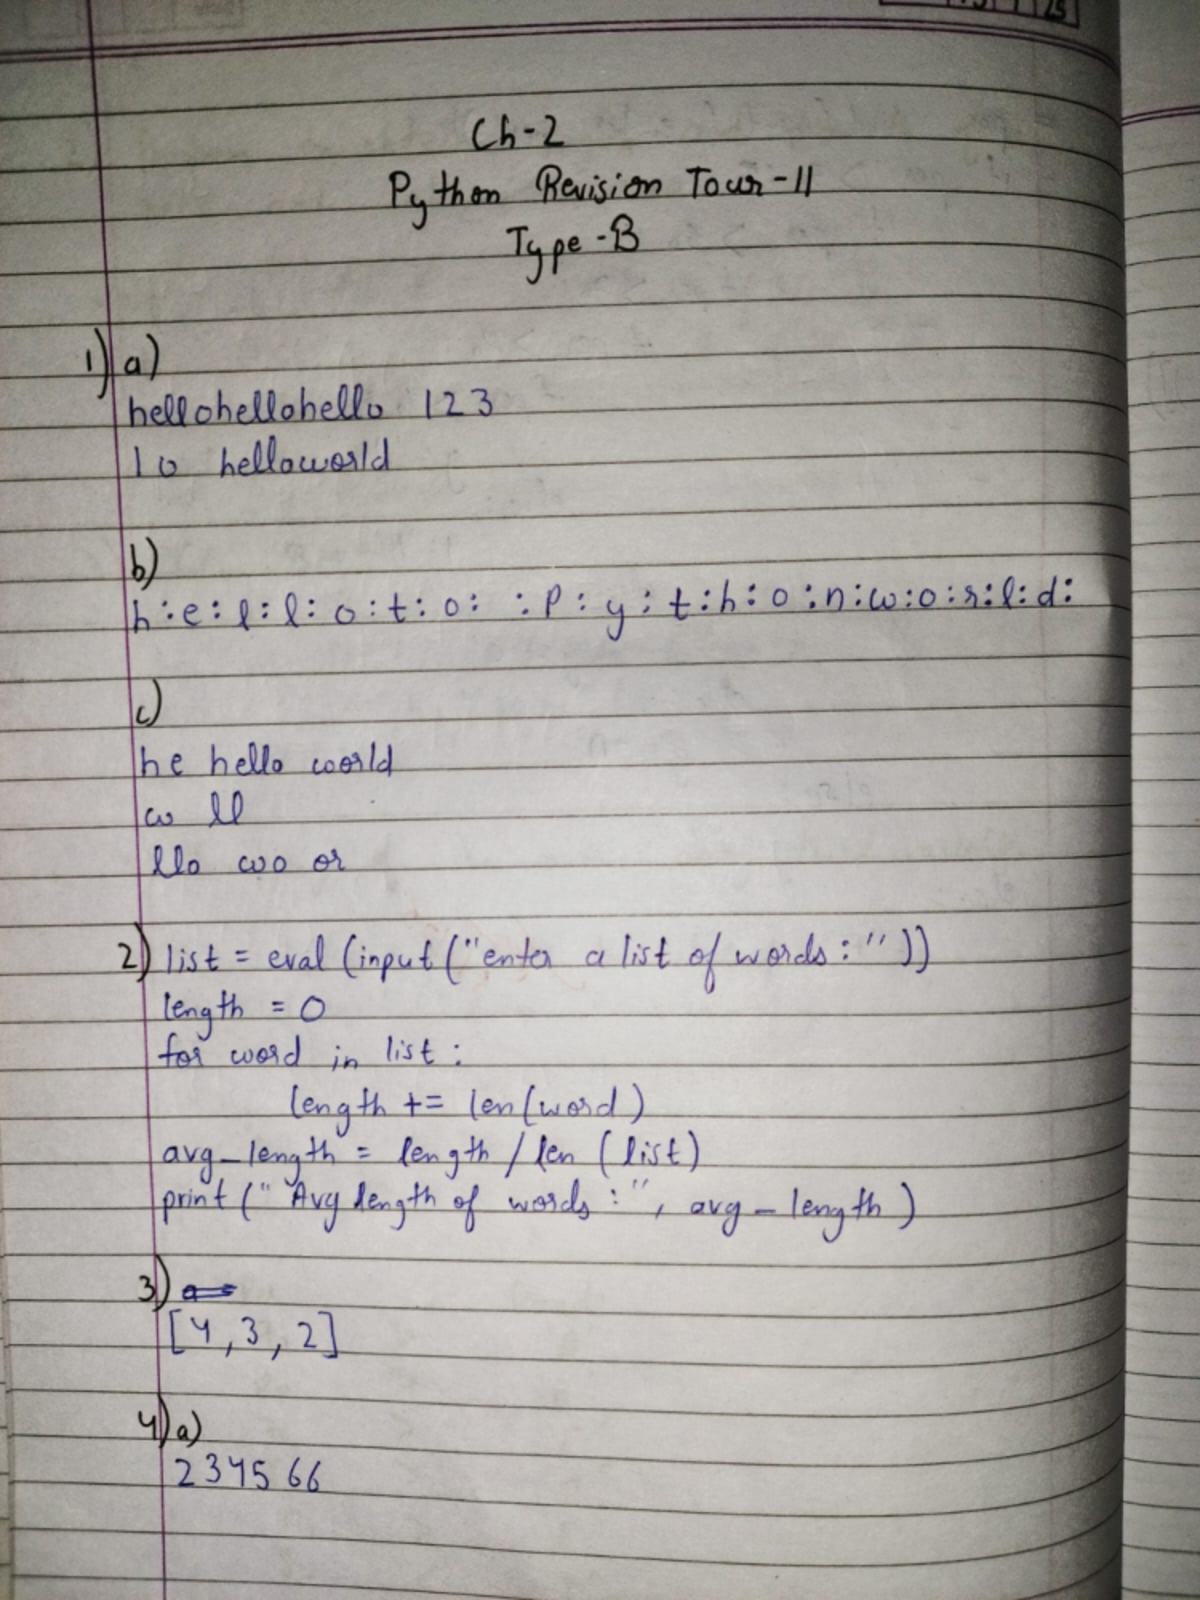 25
Ch-2
Python Revision Tour-II
Type-B
1) a)
hellohellohello 123
10 helloworld
b)
h:e:l:l:o:t:o: :P:y:t:h:o:n:w:o:r:l:d:
c)
he hello world
w ll
llo wo or
2) list = eval (input ("enter a list of words : "))
length = 0
for word in list :
length += len(word)
avg_length = length / len (list)
print (" Avg length of words : ", avg_length )
3)
[4, 3, 2]
4) a)
2345 66